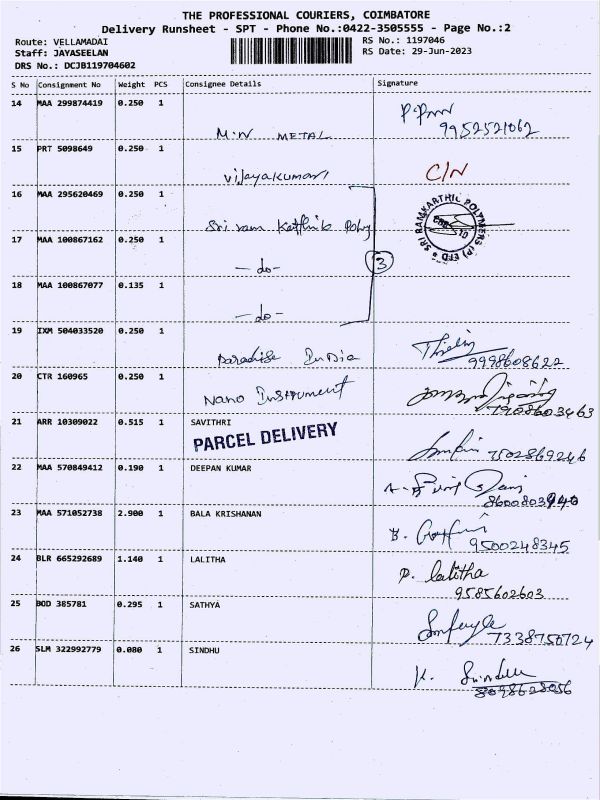 THE PROFESSIONAL COURIERS, COIMBATORE
Delivery Runsheet - SPT - Phone No.:0422-3505555 - Page No.:2
Route: VELLAMADAI
RS No.: 1197046
Staff: JAYASEELAN
RS Date: 29-Jun-2023
DRS No.: DCJB119704602
S No Consignment No Weight PCS Consignee Details Signature
14 MAA 299874419 0.250 1
M.N METAL
9952521062
15 PRT 5098649 0.250 1
Vijayakumari
C/N
16 MAA 295620469 0.250 1
Sri ram Karthik Poly
SRI RAMKARTHIC POLYMERS (P) LTD
17 MAA 100867162 0.250 1
- do -
3
18 MAA 100867077 0.135 1
- do -
19 IXM 504033520 0.250 1
Paradise India
9998608622
20 CTR 160965 0.250 1
Nano Instrument
7908603463
21 ARR 10309022 0.515 1 SAVITHRI
PARCEL DELIVERY
7502869246
22 MAA 570849412 0.190 1 DEEPAN KUMAR
23 MAA 571052738 2.900 1 BALA KRISHANAN
9500248345
24 BLR 665292689 1.140 1 LALITHA
P. lalitha
9585602603
25 BOD 385781 0.295 1 SATHYA
7338750724
26 SLM 322992779 0.080 1 SINDHU
K. Sindhu
8098628056